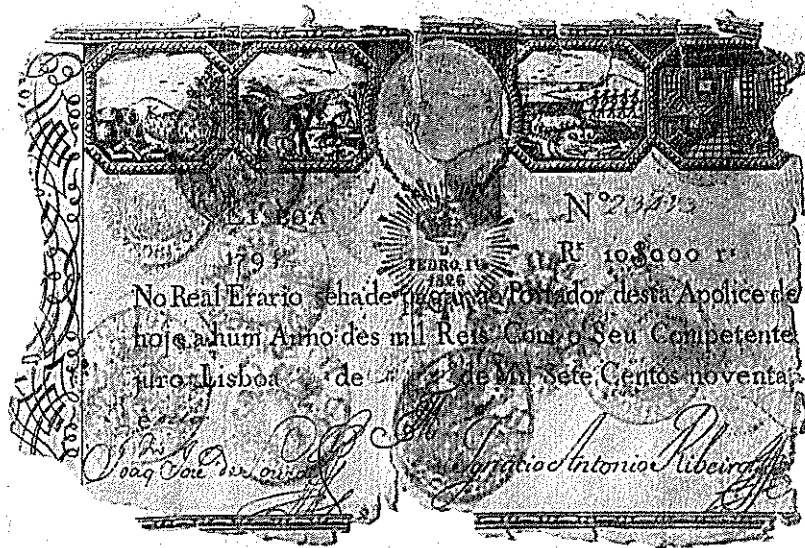 LISBOA
Nº 23413
179
D.
PEDRO IV
1826
Rˢ 10$000 rˢ
No Real Erario sehade pagar ao Portador desta Apolice de
hoje a hum Anno des mil Reis Com o Seu Competente
juro. Lisboa de de Mil Sete Centos noventa
e
Joaq José de Souza
Ignacio Antonio Ribeiro